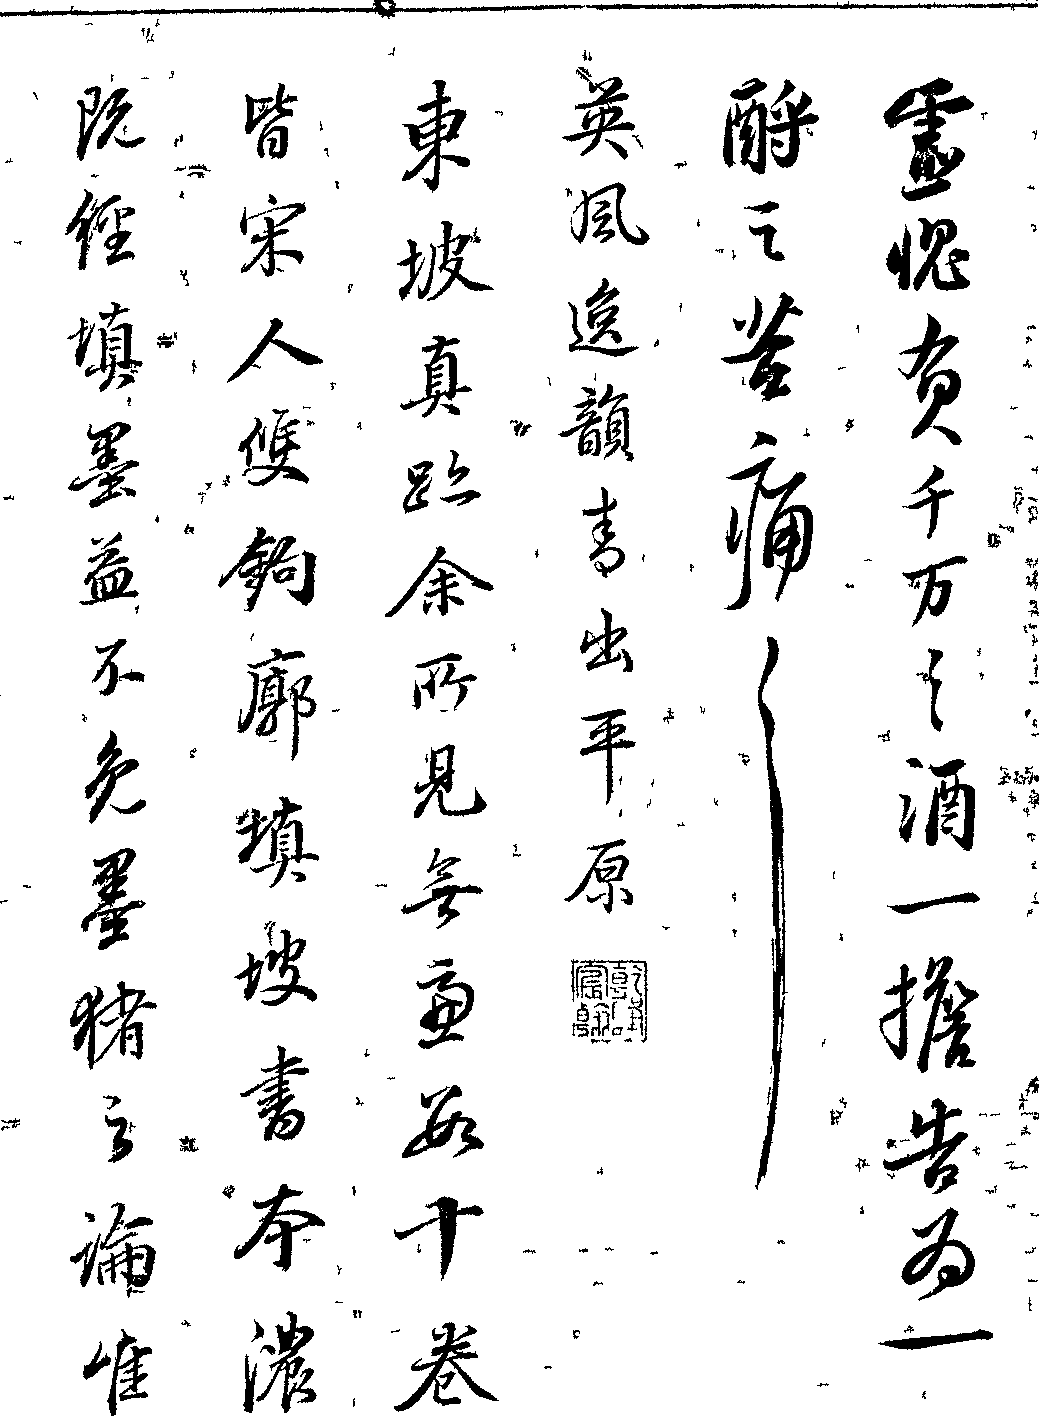 靈愧負千万之酒一擔告為一
酹之苦痛
英風逸韻青出平原
乾隆宸翰
東坡真跡余所見無慮數十卷
皆宋人雙鉤廓填坡書本濃
既經填墨益不免墨猪之論惟